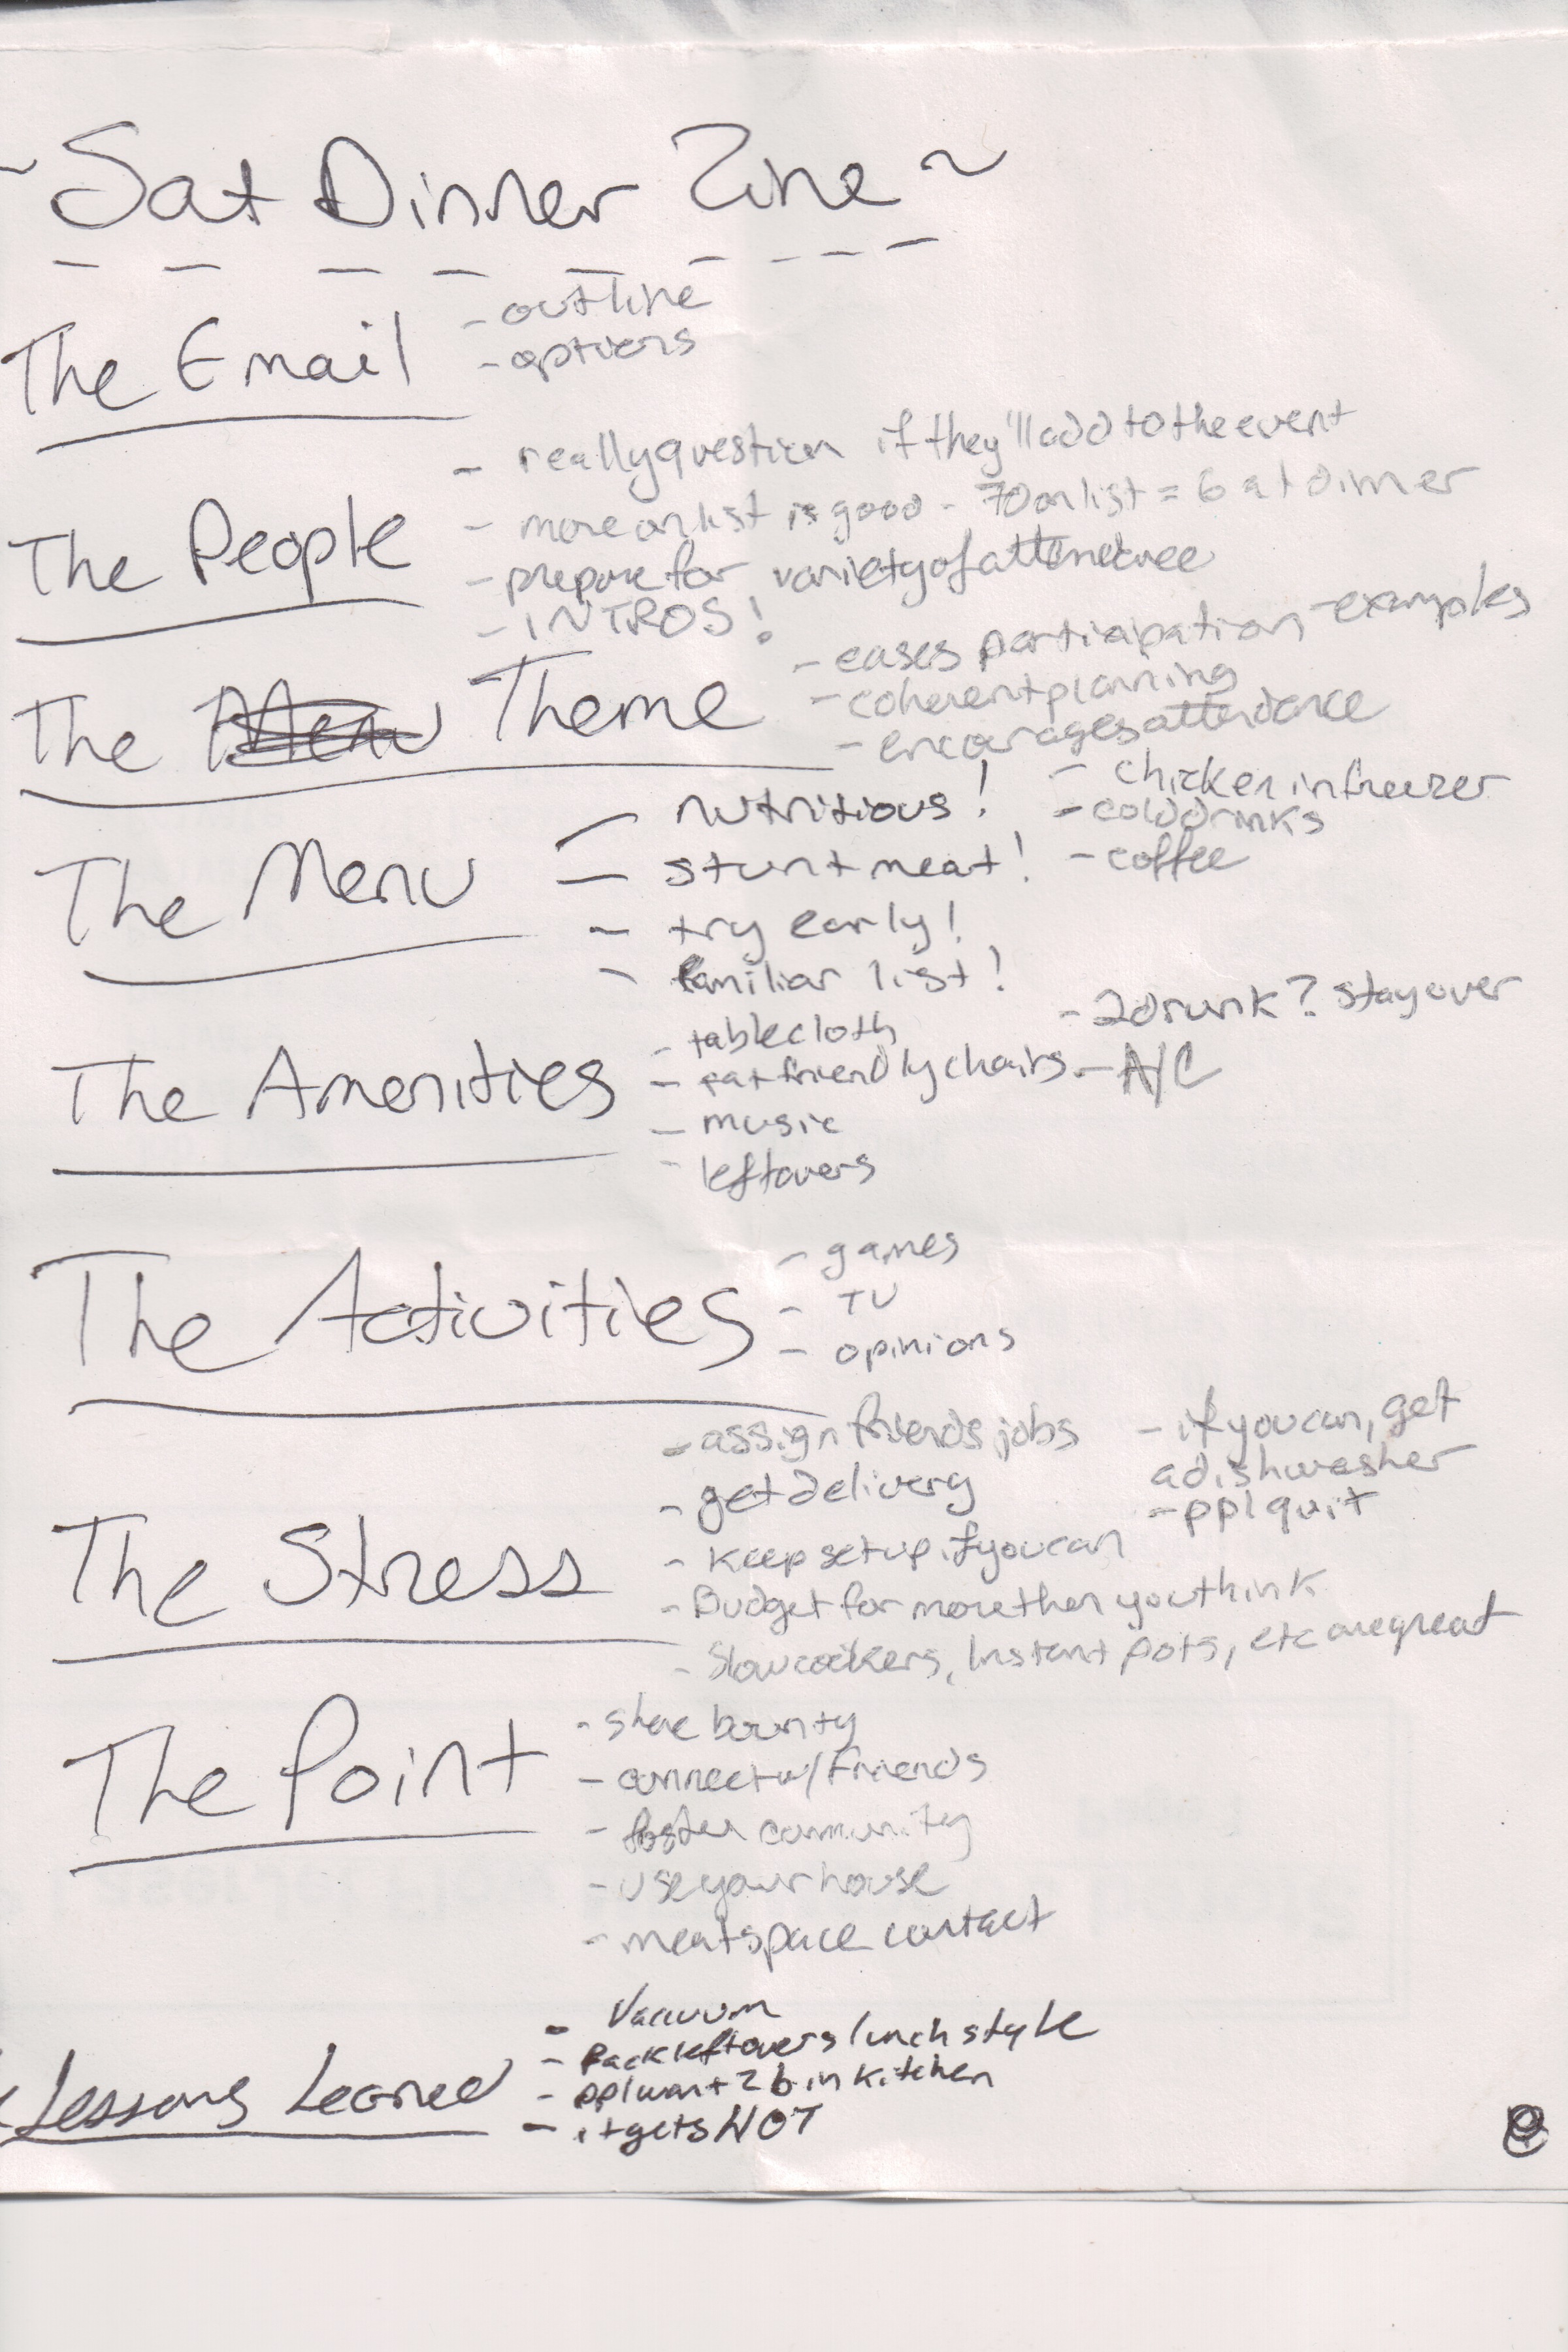 ~ Sat Dinner Zine ~
The Email
- outline
- options
The People
- really question if they'll add to the event
- more on list is good - 70 on list = 6 at dinner
- prepare for variety of
- INTROS!
The Menu Theme
- eases participation - examples
- coherent planning
- encourages attendance
The Menu
- nutritious!
- stunt meat!
- try early!
- familiar list!
- chicken in freezer
- cold drinks
- coffee
The Amenities
- tablecloth
- fat friendly chairs
- music
- leftovers
- 2 drunk? stay over
- A/C
The Activities
- games
- TV
- opinions
The Stress
- assign friends jobs
- get delivery
- keep setup if you can
- Budget for more then you think
- Slow cookers, Instant pots, etc are great
- if you can, get
a dishwasher
- ppl quit
The Point
- share bounty
- connect w/ friends
- foster community
- use your house
- meatspace contact
Lessons Learned
- Vacuum
- Pack leftovers lunch style
- ppl want 2 b in kitchen
- it gets HOT